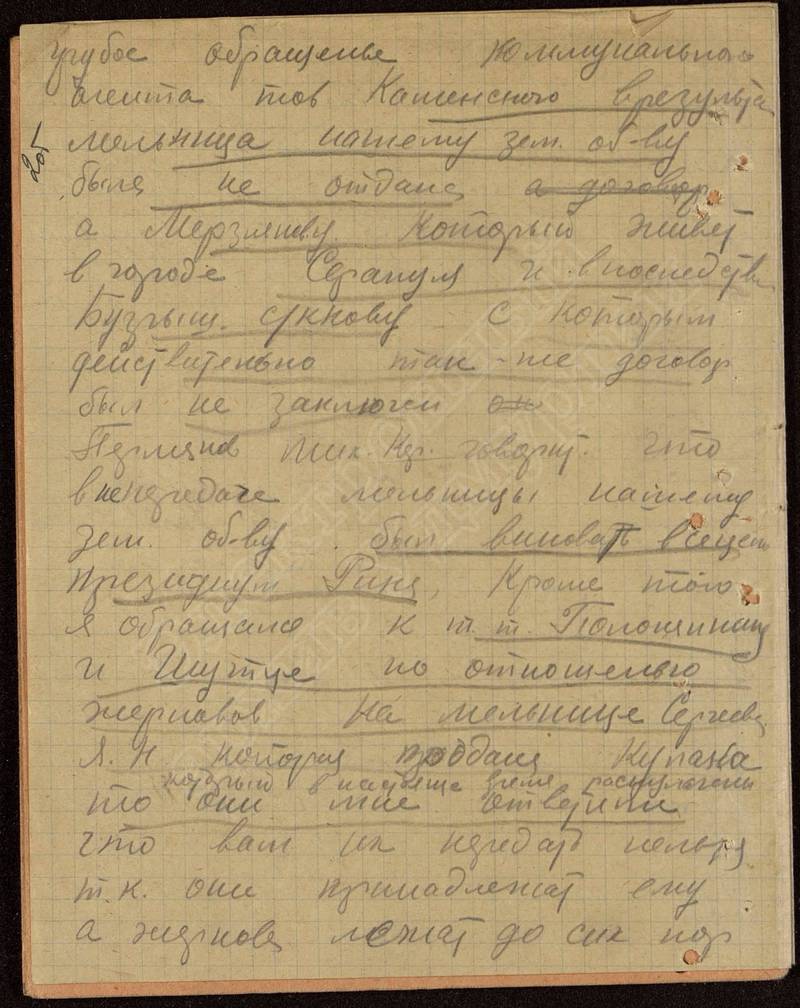 грубое обращенье коммунального
агента тов Каменского врезульта
мельница нашему зем. об-ву
была не отдана а договор
а Мерзлякову который живет
в городе Сарапуля и впоследстви
с которым
действительно так-же договор
был не заключен он
Пермяков Ник. говорит. что
в непередаче мельницы нашему
зем. об-ву был виноват всецело
президиум Рика, Кроме того
я обращался к т.т. Полошинину
и Шутце по отношенью
жернавов на мельнице Сергеева
Я. Н которая продана
который в настояще время раскулачен
то они мне ответили
что вам их передать нельзя
т.к. они принадлежат ему
а жернова лежат до сих пор
205